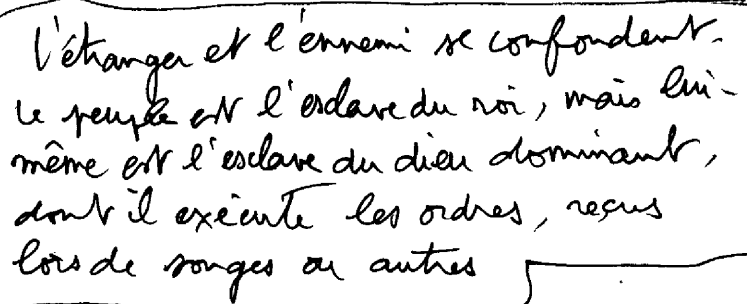 l'étranger et l'ennemi se confondent.
le peuple est l'esclave du roi, mais lui-
même est l'esclave du dieu dominant,
dont il exécute les ordres, reçus
lors de songes ou autres